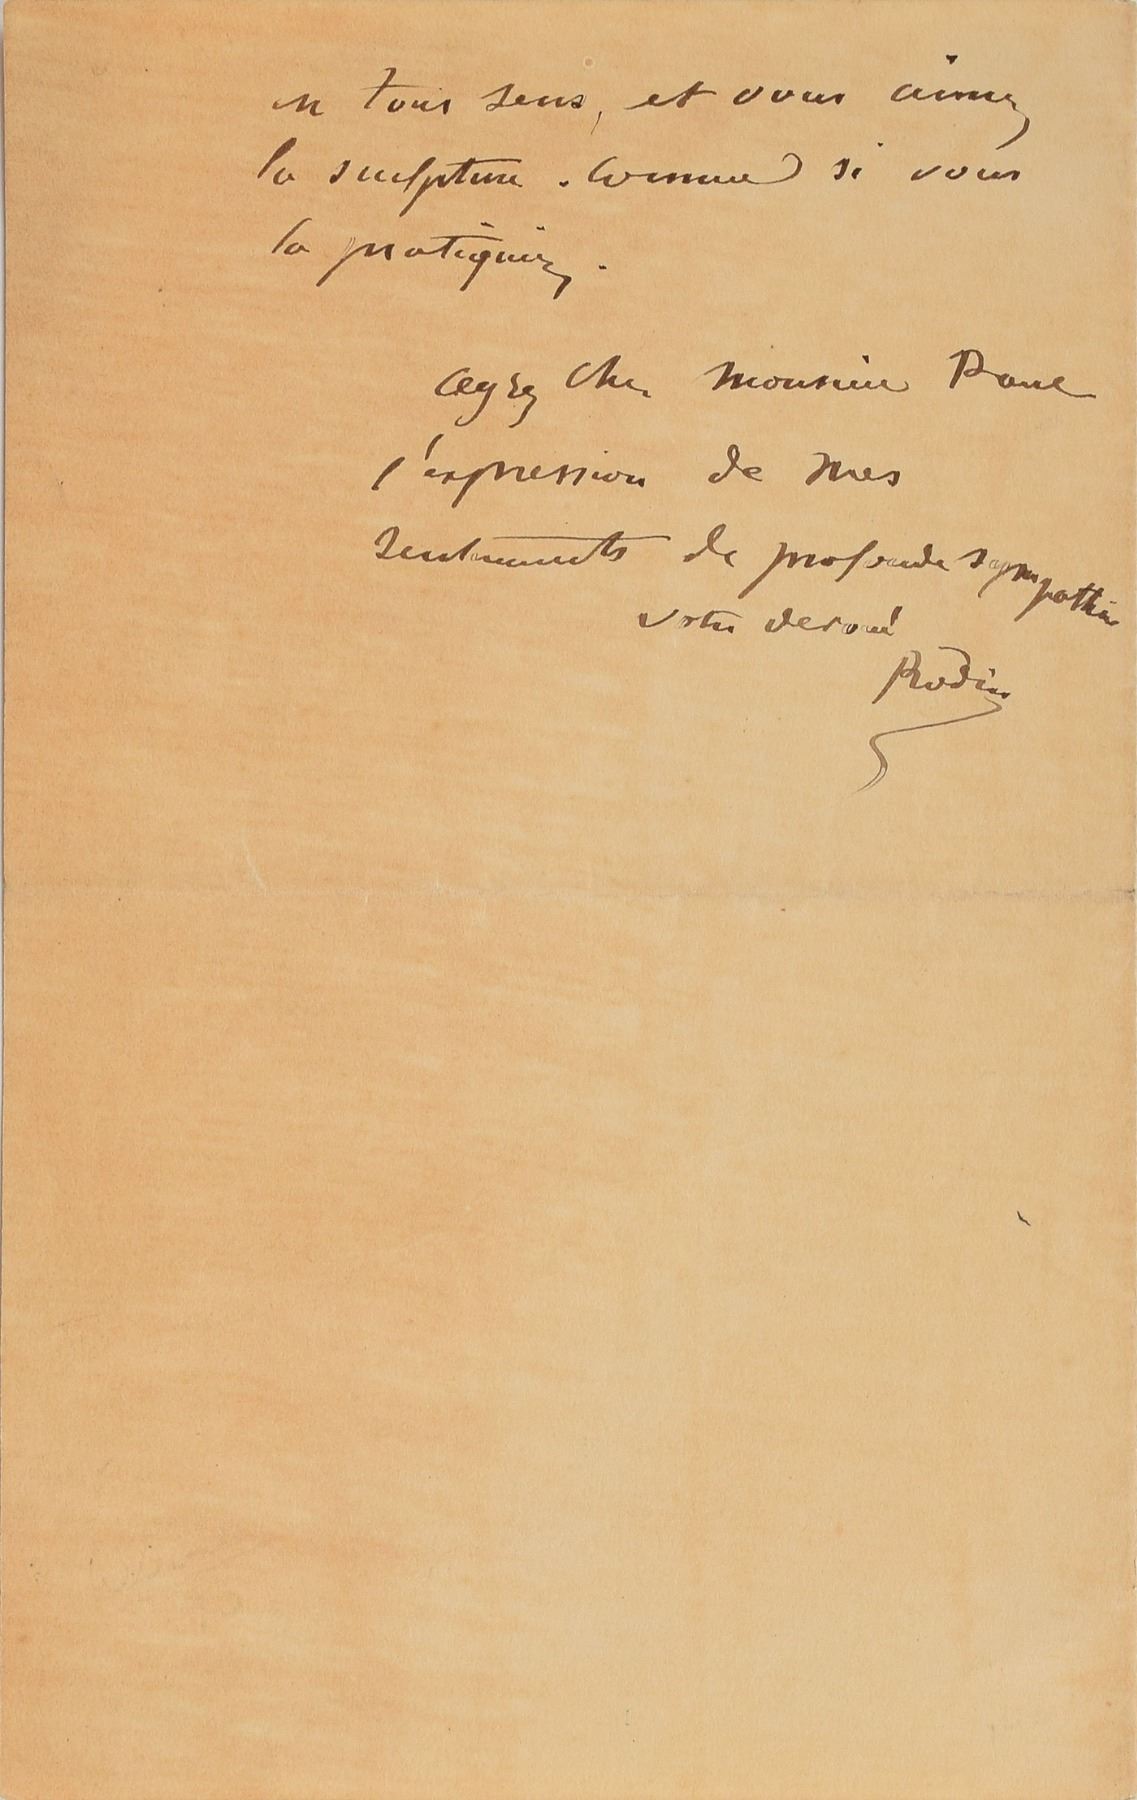 en tous sens, et vous aimez
la sculpture. comme si vous
la pratiquiez.
agréez cher Monsieur
l'expression de mes
sentiments de profonde sympathie
votre devoué
Rodin